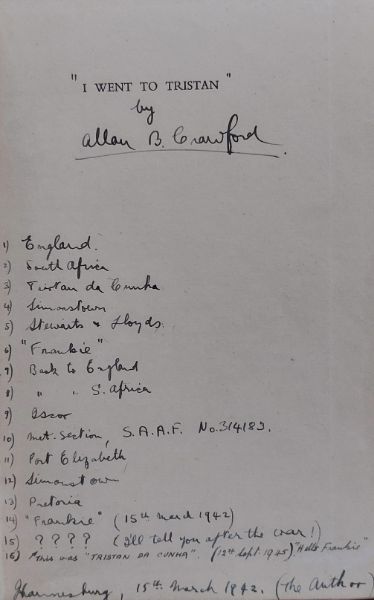 "I WENT TO TRISTAN"
by
Allan B. Crawford
1) England.
2) South Africa
3) Tristan da Cunha
4) Simonstown
5) Stewarts & Lloyds.
6) "Frankie"
7) Back to England
8) " " S. Africa
9) Iscor
10) Met. Section, S.A.A.F. No. 314183.
11) Port Elizabeth
12) Simonstown
13) Pretoria
14) "Frankie" (15th March 1942)
15) ? ? ? ? (I'll tell you after the war!)
16) THIS WAS "TRISTAN DA CUNHA". (12th Sept. 1945) "Hello Frankie"
Johannesburg, 15th March 1942. (The Author)